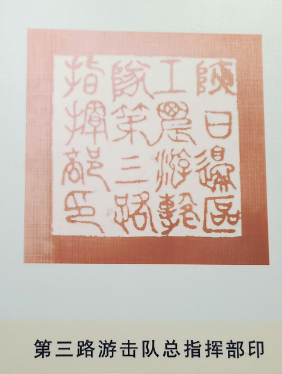 陝甘邊區
工農游擊
隊第三路
指揮部印
第三路游击队总指挥部印